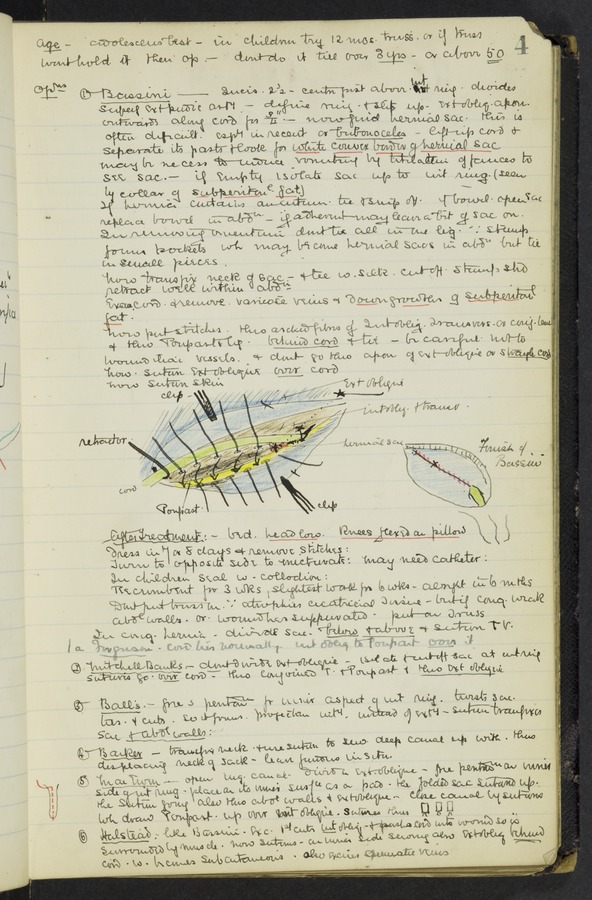 4
Age - adolescens best - in children try 12 mos. truss. or if truss
wont hold it then op. - dont do it till over 3 yrs - or above 50
Opns ① Bassini - Incis. 2½ - centre just above int ring. divides
superf Ext pudic arty - define ring & slit up. Ext oblig. apon.
outwards along cord for 2" - now find hernial sac. this is
often difficult esply in recent or bubonoceles - lift up cord &
separate its parts & look for white convex border of hernial sac
may be necess to induce vomiting by titillation of fauces to
see sac. - if Empty isolate sac up to int ring (seen
by collar of subperitonl fat)
If hernia contains omentum tie & snip off. & bowel. open sac
replace bowel in abdn - if adherent may leave a bit of sac on.
In removing omentum dont tie all in one lig. ∵ stump
forms pockets wh may become hernial sacs in abdn but tie
in small pieces.
Now transfix neck of sac - & tie w. silk. cut off. Stump shd
retract well within abdn
Exam cord & remove varicose veins & downgrowths of subperitonl
fat.
Now put stitches. thro arched fibres of Int oblig. Transvers. or conj.
& thro Pouparts lig. behind cord & tie - be careful not to
wound iliac vessels. & dont go thro apon of ext oblique or
now. suture Ext oblique over cord
now suture skin
clip
Ext oblique
int oblig. & transv.
retractor
hernial sac
Finish of
Bassini
cord
Poupart
clip
After treatment: - bed. head low. Knees flexed on pillow
Dress in 7 or 8 days & remove stitches:
Turn to opposite side to micturate: may need catheter:
In children seal w. collodion:
Recumbent for 3 wks, slightest work for 6 wks - alright in 6 mths
Dont put truss on ∵ atrophies cicatricial tissue - but if cong. weak
abdl walls. or wound has suppurated. put on truss
In cong. hernia - divide sac. below & above & suture T.V.
1a Ferguson. cord lies normally int oblig to Poupart over it
② Mitchell Banks - dont divide ext oblique - isolate & cut off sac at ext ring
sutures go over cord - thro conjoined T. & Poupart & thro Ext oblique
③ Ball's - free s peritonm fr inner aspect of int ring. twists sac.
ties. & cuts. So it forms projection intly instead of extly - suture transfixes
sac & abdl walls:
④ Barker - transfix neck & use suture to sew deep canal up with. thus
displacing neck of sac - leave fundus in situ.
⑤ Macewen - open ing. canal. Divide ext oblique - free peritonm on inner
side of int ring. place on its inner surfce as a pad. the folded sac sutured up.
the suture going also thro abdl walls & ext oblique - close canal by sutures
wh draw Poupart. up over int oblique. Sutures thus
⑥ Halstead. like Bassini. Exc. 1st cuts Int oblig - & packs cord into wound so is
surrounded by muscle. now sutures - on inner side sewing also ext oblig behind
cord. wh becomes subcutaneous. also excises spermatic veins